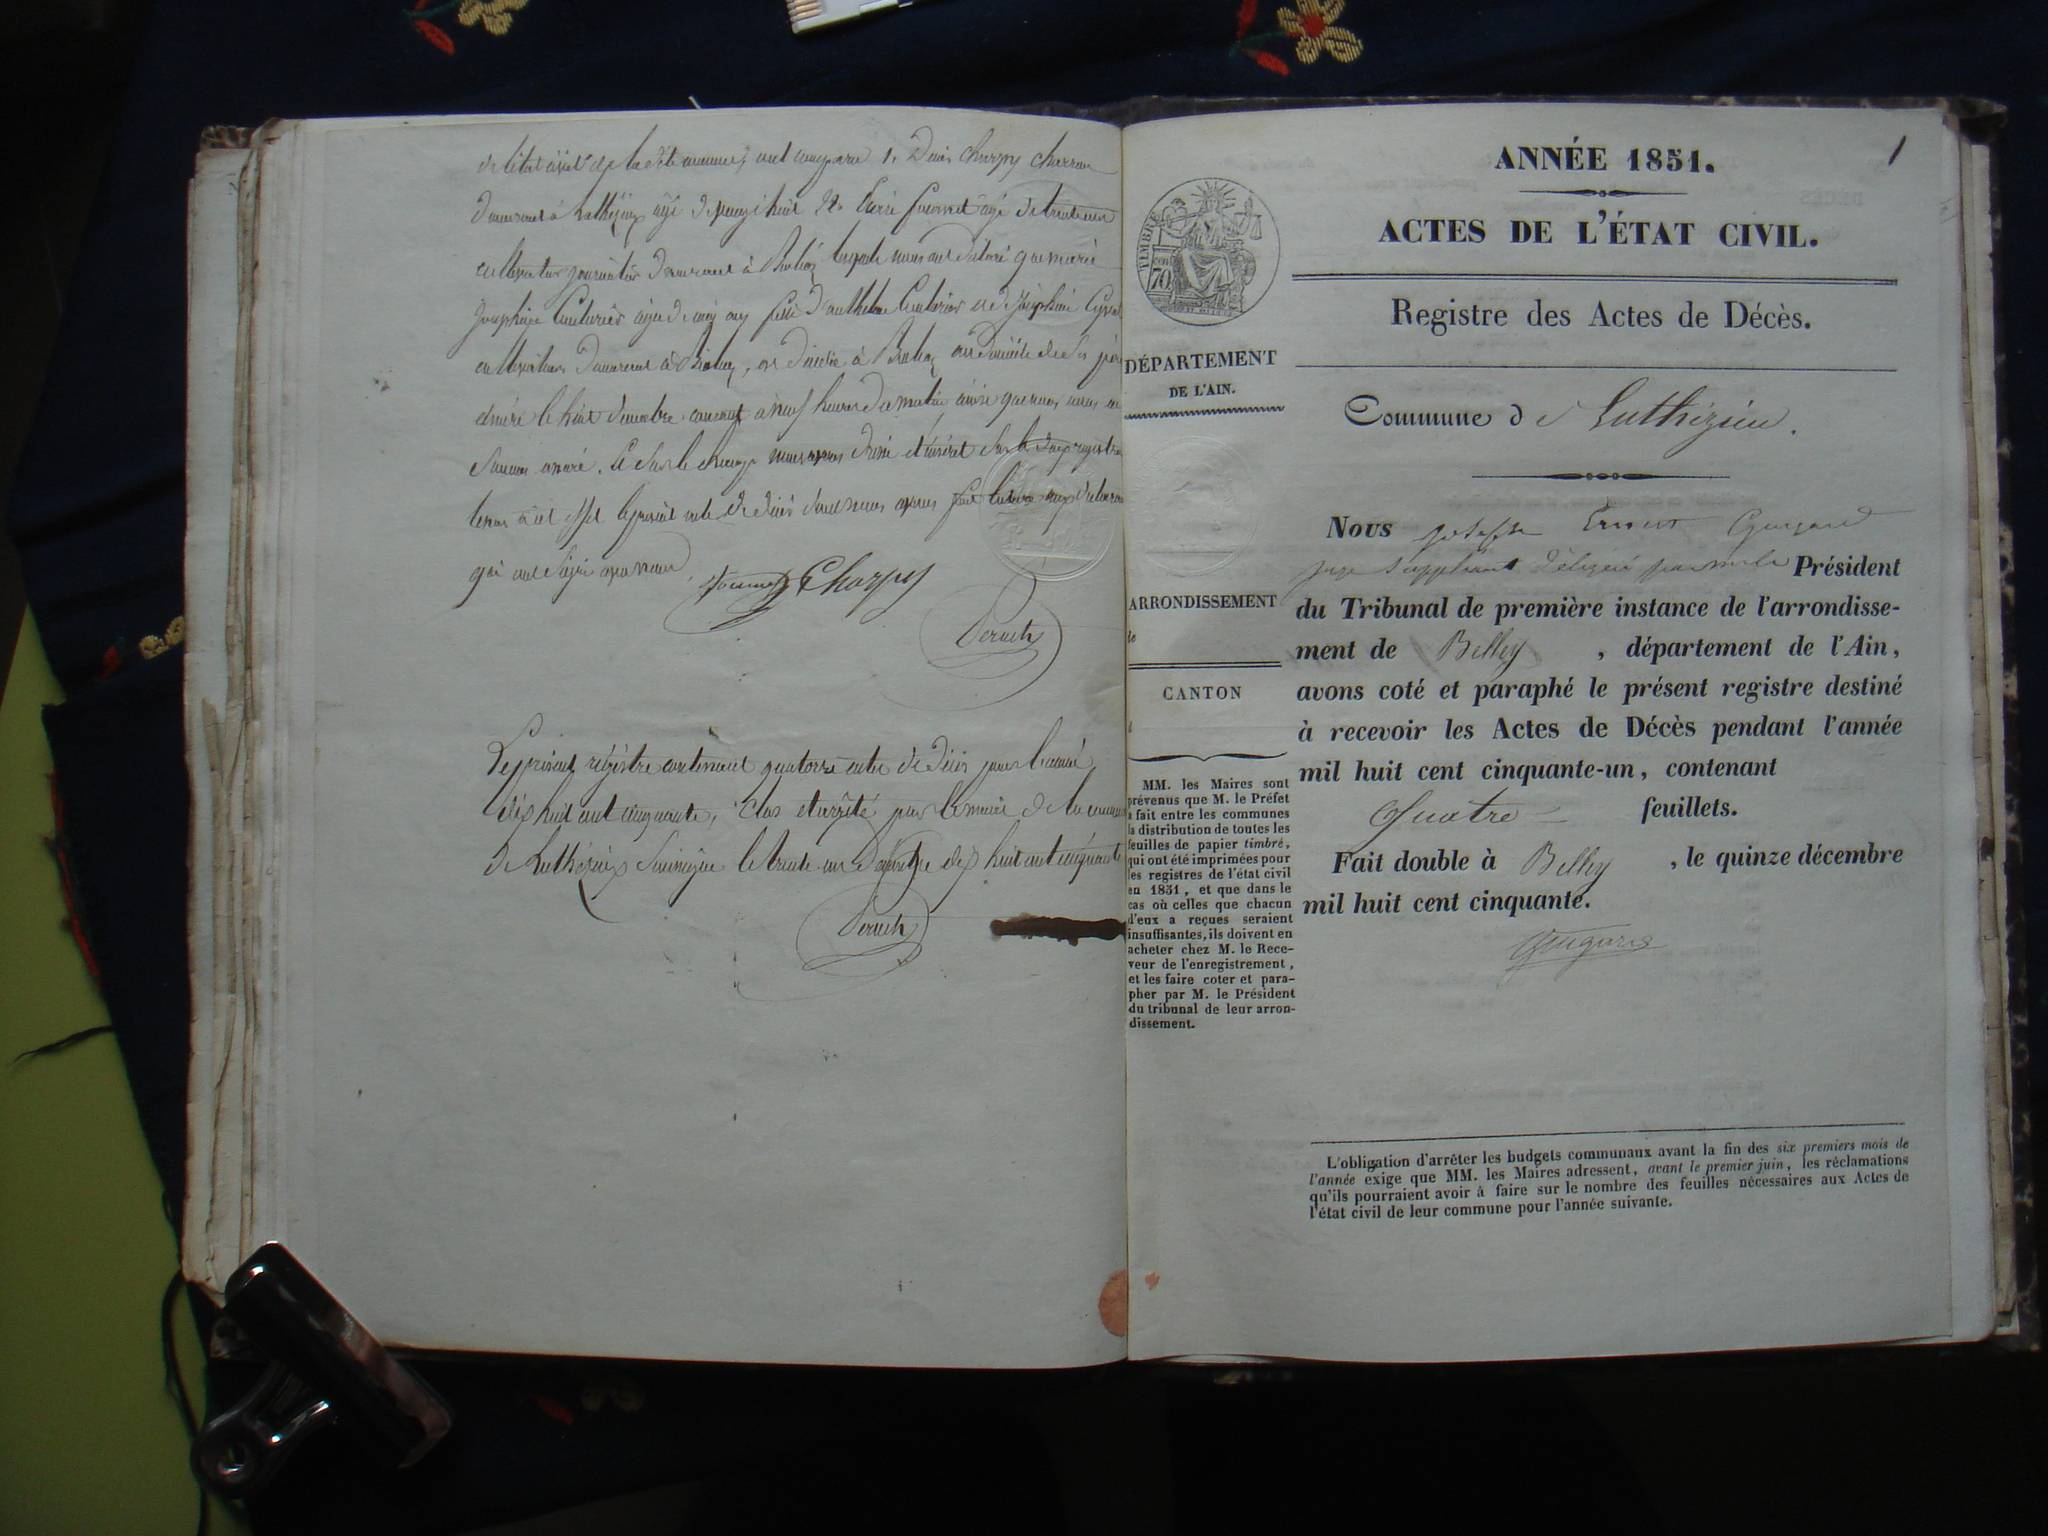 de l'état civil de la dite commune, ont comparu 1. Denis Charpy charron
demeurant à Luthézieu âgé de
cultivateur journalier demeurant à lesquels nous ont déclaré que marie
Joséphine âgée de cinq ans fille d'anthelme et de Joséphine
cultivateurs demeurant à , est décédée à au domicile de ses père
et mère le huit décembre courant à neuf heures du matin ainsi que nous nous en
sommes assuré. Et sur le champ nous avons dressé et inséré sur les deux registres
tenus à cet effet le présent acte de décès dont nous avons fait lecture aux
qui ont signé avec nous
Charpy
Le présent régistre contenant quatorze actes de décès pour l'année
dix huit cent cinquante, clos et arrêté par le maire de la commune
de Luthézieu le trente un dix huit cent cinquante
1
ANNÉE 1851.
ACTES DE L'ÉTAT CIVIL.
Registre des Actes de Décès.
TIMBRE
cent 70
DÉPARTEMENT
DE L'AIN.
Commune de Luthézieu.
Nous Joseph Ernest
juge suppléant délégué par mr le Président
du Tribunal de première instance de l'arrondisse-
ment de Belley , département de l'Ain,
avons coté et paraphé le présent registre destiné
à recevoir les Actes de Décès pendant l'année
mil huit cent cinquante-un, contenant
Quatre feuillets.
Fait double à Belley , le quinze décembre
mil huit cent cinquante.
ARRONDISSEMENT
de
CANTON
d
MM. les Maires sont
prévenus que M. le Préfet
a fait entre les communes
la distribution de toutes les
feuilles de papier timbré,
qui ont été imprimées pour
les registres de l'état civil
en 1851, et que dans le
cas où celles que chacun
d'eux a reçues seraient
insuffisantes, ils doivent en
acheter chez M. le Rece-
veur de l'enregistrement,
et les faire coter et para-
pher par M. le Président
du tribunal de leur arron-
dissement.
L'obligation d'arrêter les budgets communaux avant la fin des six premiers mois de
l'année exige que MM. les Maires adressent, avant le premier juin, les réclamations
qu'ils pourraient avoir à faire sur le nombre des feuilles nécessaires aux Actes de
l'état civil de leur commune pour l'année suivante.